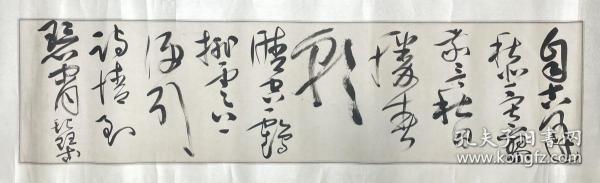 自古逢
秋悲寂寥
我言秋日
胜春
朝
晴空一鹤
排云上
便引
诗情到
碧霄
孔夫子旧书网
www.kongfz.com